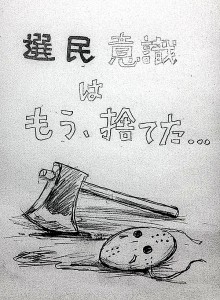 選民意識
は
もう、捨てた…